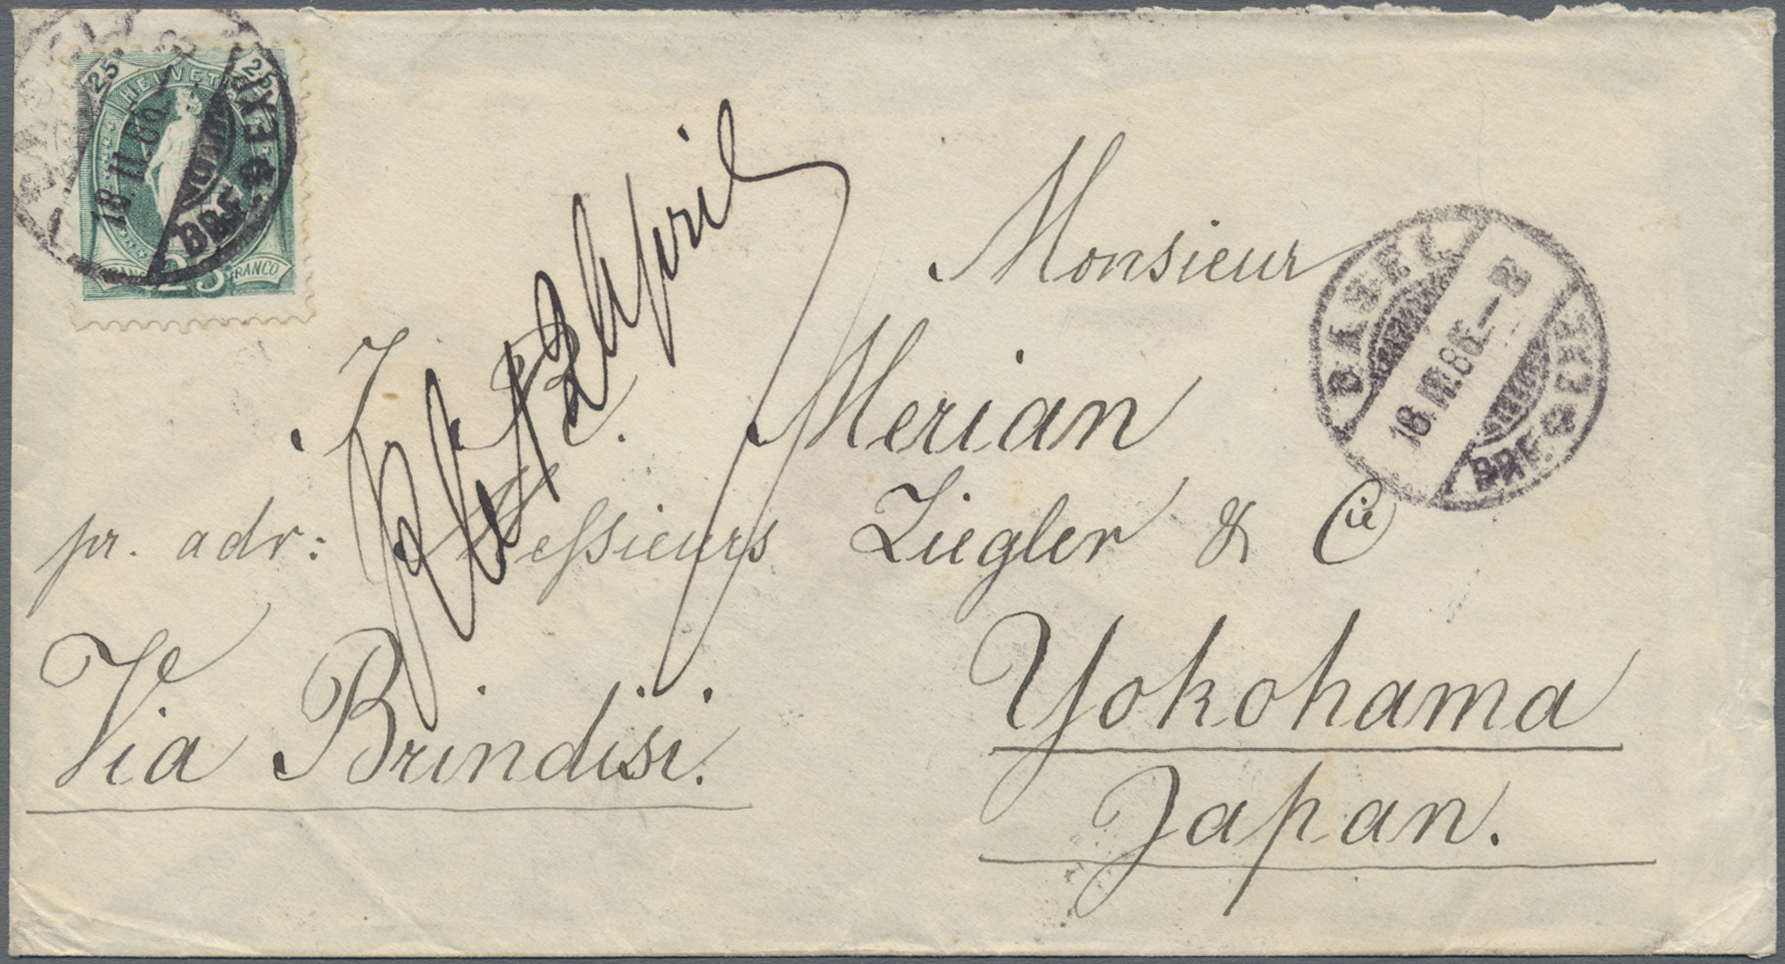 25 HELVETIA 25
FRANCO 25 FRANCO
18.III.86
BRF. EXP.
BASEL
18.III.86.–8
BRF. EXP.
April
Monsieur
J. R. Merian
pr. adr: Messieurs Ziegler & Cie
Via Brindisi.
Yokohama
Japan.